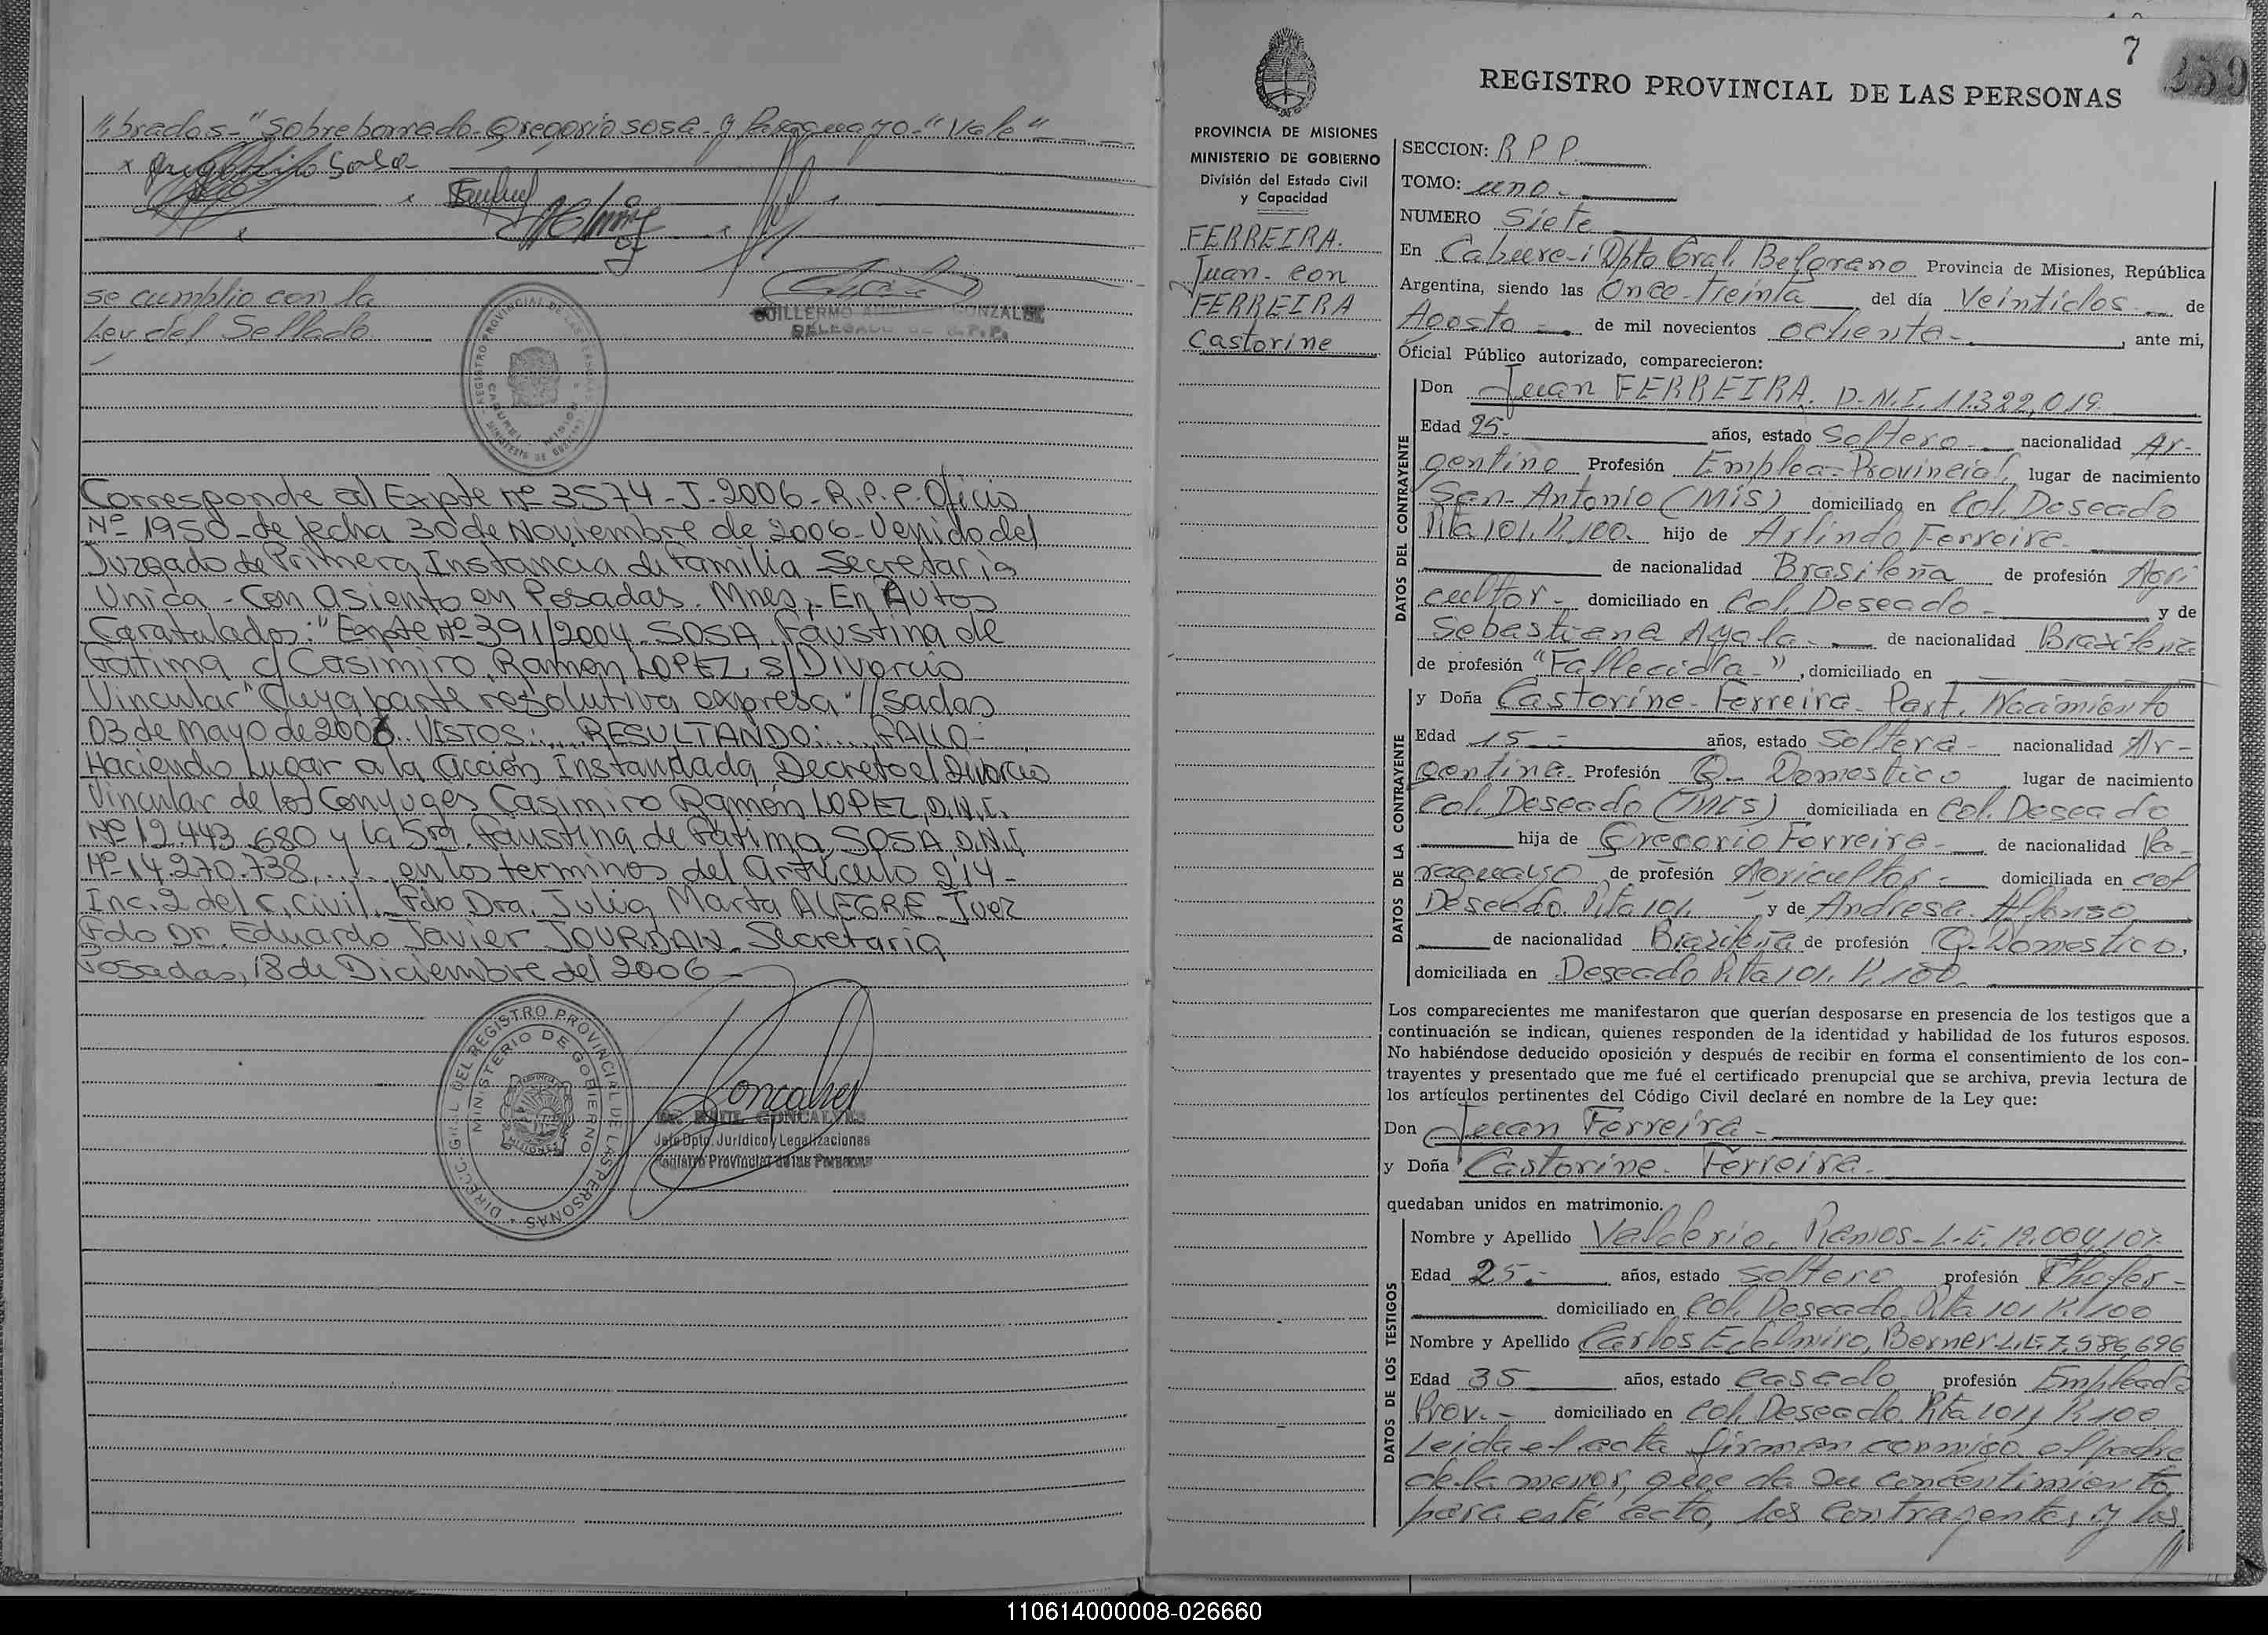 "brados-" Sobreborrado-Gregorio sosa-y Paraguayo-" Vale"-
se cumplio con la
Ley del Sellado
GUILLERMO GONZALEZ
DELEGADO DE R.P.P.
Corresponde al Expte Nº 3574-J-2006-R.P.P. Oficio
Nº 1950-de fecha 30 de Noviembre de 2006-Venido del
Juzgado de Primera Instancia di Familia Secretaria
Unica - Con asiento en Posadas. Mnes,- En Autos
Caratulados: "Expte Nº 391/2004 SOSA, Faustina de
Fatima c/ Casimiro, Ramon LOPEZ, s/ Divorcio
Vincular" Cuya parte resolutiva expresa "//sadas
03 de Mayo de 2006. VISTOS:.... RESULTANDO:.... FALLO-
Haciendo Lugar a la acción Instaurada, Decreto el Divorcio
Vincular de los Conyuges Casimiro Ramón LOPEZ, D.N.I.
Nº 12.443.680 y la Sra. Faustina de Fátima, SOSA, D.N.I.
Nº 14.270.738,.... en los terminos del artículo 214-
Inc. 2 del C. Civil.- Fdo Dra. Julia Marta ALEGRE-Juez
Fdo Dr. Eduardo Javier JOURDAN-Secretaria
Posadas, 18 de Diciembre del 2006-
DIRECC. GRAL. DEL REGISTRO PROVINCIAL DE LAS PERSONAS
MINISTERIO DE GOBIERNO
Dr. RAUL GONCALVES
Jefe Dpto. Jurídico y Legalizaciones
Registro Provincial de las Personas
7
REGISTRO PROVINCIAL DE LAS PERSONAS
PROVINCIA DE MISIONES
MINISTERIO DE GOBIERNO
División del Estado Civil
y Capacidad
FERREIRA.
Juan- con
FERREIRA
Castorine
SECCION: R P P.
TOMO: uno-
NUMERO Siete
En Cabure-i Dpto Gral. Belgrano Provincia de Misiones, República
Argentina, siendo las Once-treinta del día Veintidos de
Agosto de mil novecientos ochenta-, ante mi,
Oficial Público autorizado, comparecieron:
DATOS DEL CONTRAYENTE
Don Juan FERREIRA. D.N.I. 11.322,019
Edad 25- años, estado Soltero- nacionalidad Ar-
gentino Profesión Emplea-Provincial, lugar de nacimiento
San-Antonio (Mis) domiciliado en Col. Deseado
Rta 101. P. 100. hijo de Arlindo Ferreira-
de nacionalidad Brasileña de profesión Agri
cultor- domiciliado en Col. Deseado- y de
Sebastiana Ayala- de nacionalidad Brasileña
de profesión "Fallecida-", domiciliado en
DATOS DE LA CONTRAYENTE
y Doña Castorine- Ferreira- Part. Nacimiento
Edad 15- años, estado Soltera- nacionalidad Ar-
gentina- Profesión Q- Domestico lugar de nacimiento
Col. Deseado (Mis) domiciliada en Col. Deseado
hija de Gregorio Ferreira- de nacionalidad Pa-
raguayo de profesión Agricultor- domiciliada en col
Deseado. Rta 101. y de Andresa. Alfonso
de nacionalidad Brasileña de profesión Q-Domestico,
domiciliada en Deseado Rta 101. P. 100.
Los comparecientes me manifestaron que querían desposarse en presencia de los testigos que a
continuación se indican, quienes responden de la identidad y habilidad de los futuros esposos.
No habiéndose deducido oposición y después de recibir en forma el consentimiento de los con-
trayentes y presentado que me fué el certificado prenupcial que se archiva, previa lectura de
los artículos pertinentes del Código Civil declaré en nombre de la Ley que:
Don Juan Ferreira-
y Doña Castorine- Ferreira-
quedaban unidos en matrimonio.
DATOS DE LOS TESTIGOS
Nombre y Apellido Valderio, Ramos-L.E. 12.004,107.
Edad 25.- años, estado soltero profesión Chofer-
domiciliado en Col. Deseado Rta 101 P. 100
Nombre y Apellido Carlos Edelmiro, Berner L.E. 7.586,696
Edad 35 años, estado casado profesión Empleado
Prov.- domiciliado en Col. Deseado Rta 101, P. 100
Leida el acta firman conmigo el padre
de la menor, que da su concentimiento
para este acto, los contrayentes, y los
110614000008-026660